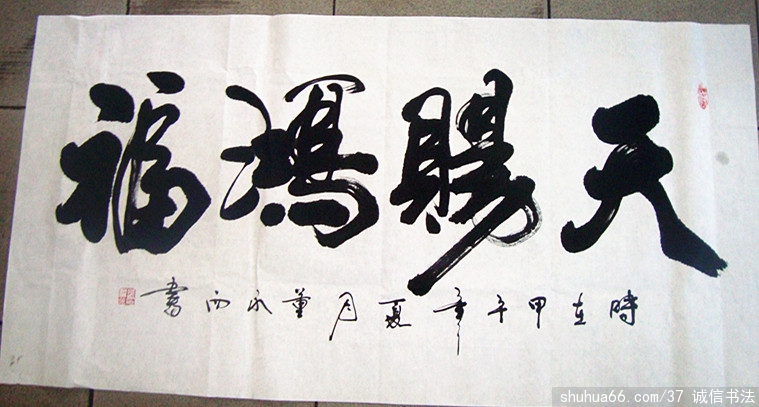 天賜鴻福
時在甲午年夏月董永西書
shuhua66.com/37 诚信书法